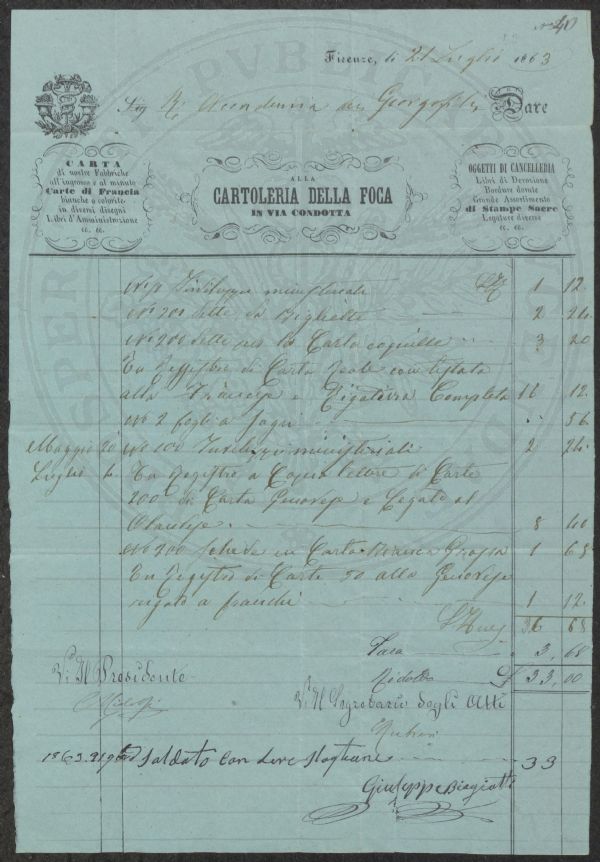 N. 40
Firenze, li 21 Luglio 1863
Sig. R. Accademia dei Georgofili Dare
CARTA
di nostre Fabbriche
all'ingrosso e al minuto
Carte di Francia
bianche e colorite
in diversi disegni
Libri d'Amministrazione
ec. ec.
ALLA
CARTOLERIA DELLA FOCA
IN VIA CONDOTTA
OGGETTI DI CANCELLERIA
Libri di Devozione
Bordure dorate
Grande Assortimento
di Stampe Sacre
Legature diverse
ec. ec.
ministeriali 1 12.
No 200 dette da Biglietto 2 24.
No 200 dette 3 20
Un Registro di Carta Reale con testata
alla Francese e Rigatura Completa 16 12.
No 2 fogli a 56
Maggio 20 No 100 ministeriali 2 24.
Luglio Un Registro a Copia lettere di Carte
200 di Carta Genovese e Legato al
Olandese 8 40
No 200 Schede in Carta Bianca Grossa 1 68
Un Registro di Carte 50 alla Genovese
rigato a franchi 1 12.
36 68
Tara 3,68
Ridotto £ 33,00
V. Il Presidente
Ridolfi
V. Il Segretario degli Atti
1863. Saldato con Lire Italiane 33
Giuseppe Biagiotti
PVBLICAE
PROSPERITATI